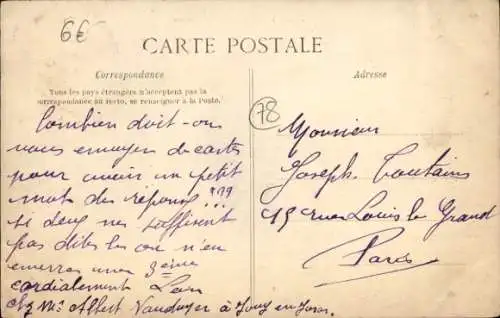 6€
CARTE POSTALE
Correspondance
Adresse
Tous les pays étrangers n'acceptent pas la
correspondance au recto, se renseigner à la Poste.
78
Combien doit-on
vous envoyer de cartes
pour avoir un petit
mot de réponse !??
si deux ne suffisent
pas dites le on n'en
enverra une 3ème
cordialement Léon
chez Mr Albert Vauduyer à Jouy en Josas
Monsieur
Joseph Toutains
15 rue Louis le Grand
Paris